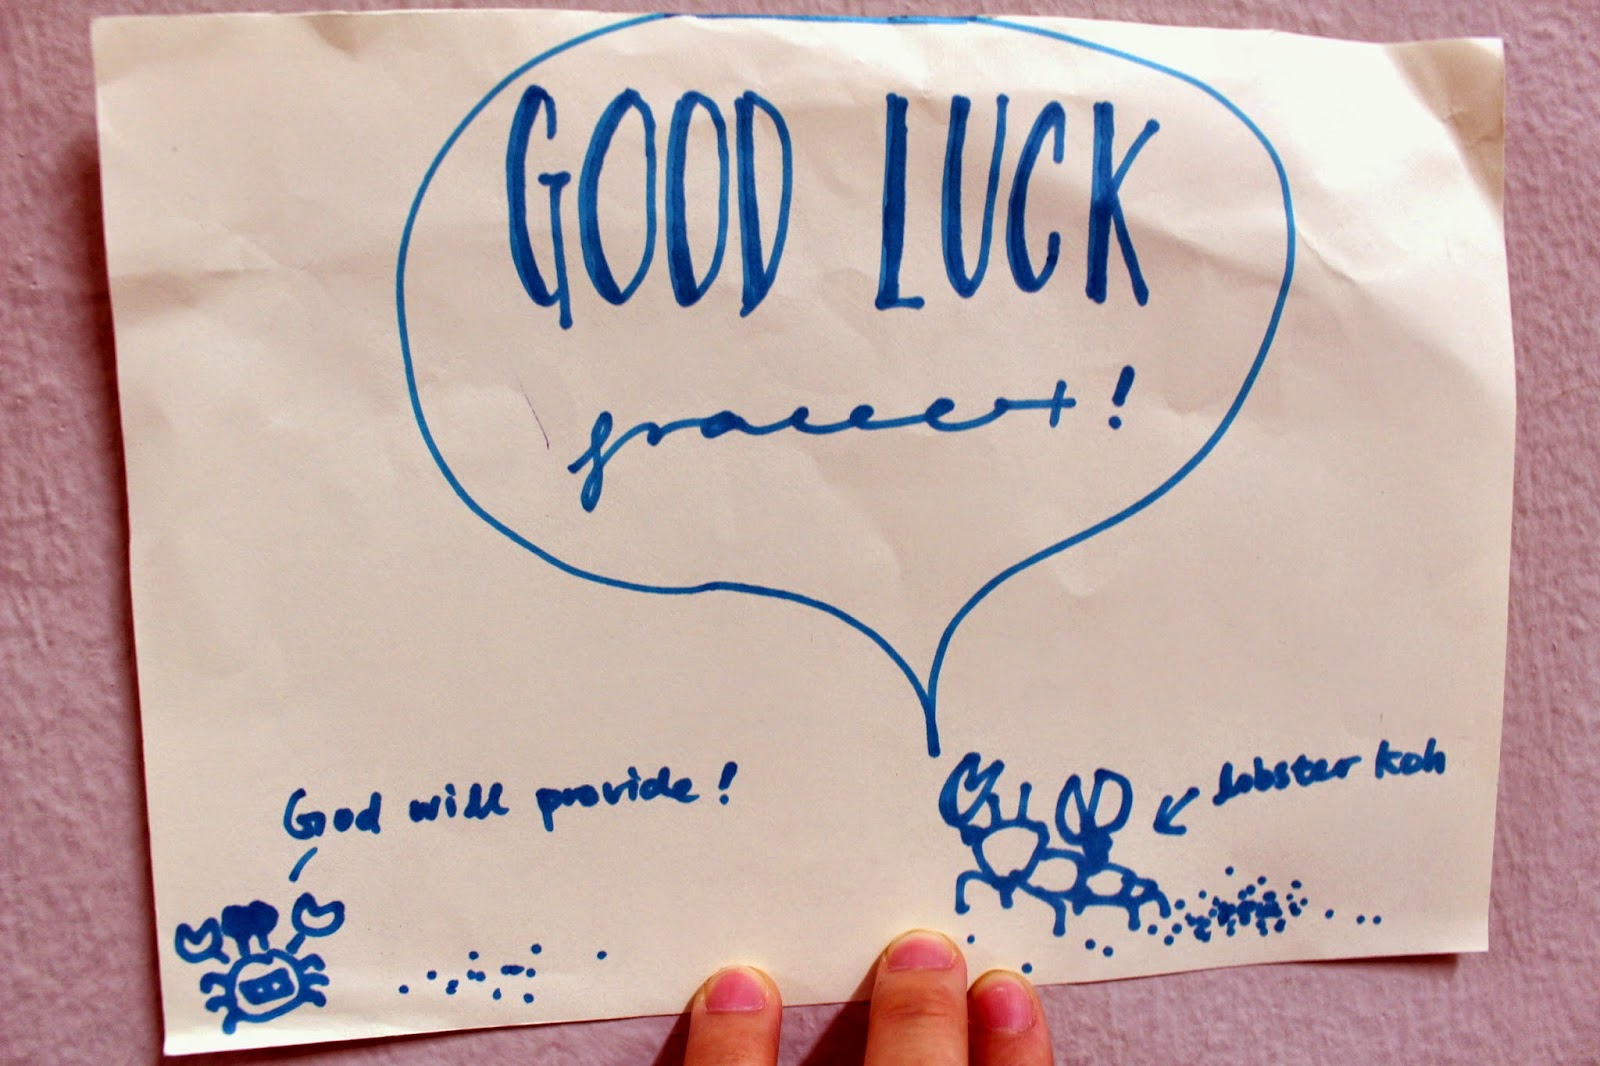 GOOD LUCK
graceeex!
God will provide!
lobster koh